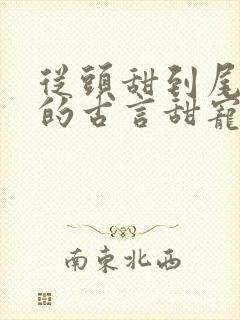 從頭甜到尾
的古言甜寵
南東北西